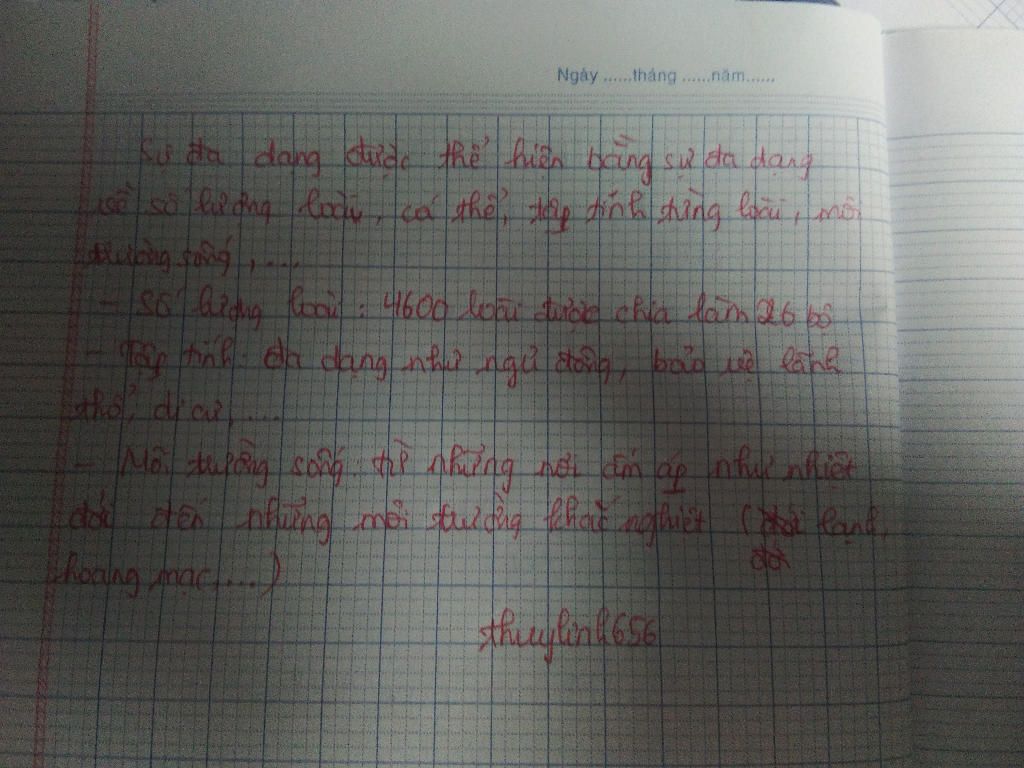 Ngày ......tháng ......năm......
Sự đa dạng được thể hiện bằng sự đa dạng
về số lượng loài, cá thể, tập tính từng loài, môi
trường sống, ....
- Số lượng loài : 4600 loài được chia làm 26 bộ
- Tập tính: đa dạng như ngủ đông, bảo vệ lãnh
thổ, di cư, ....
- Môi trường sống: từ những nơi ấm áp như nhiệt
đới đến những môi trường khắc nghiệt ( đới lạnh,
hoang mạc, ....)
thuylinh656